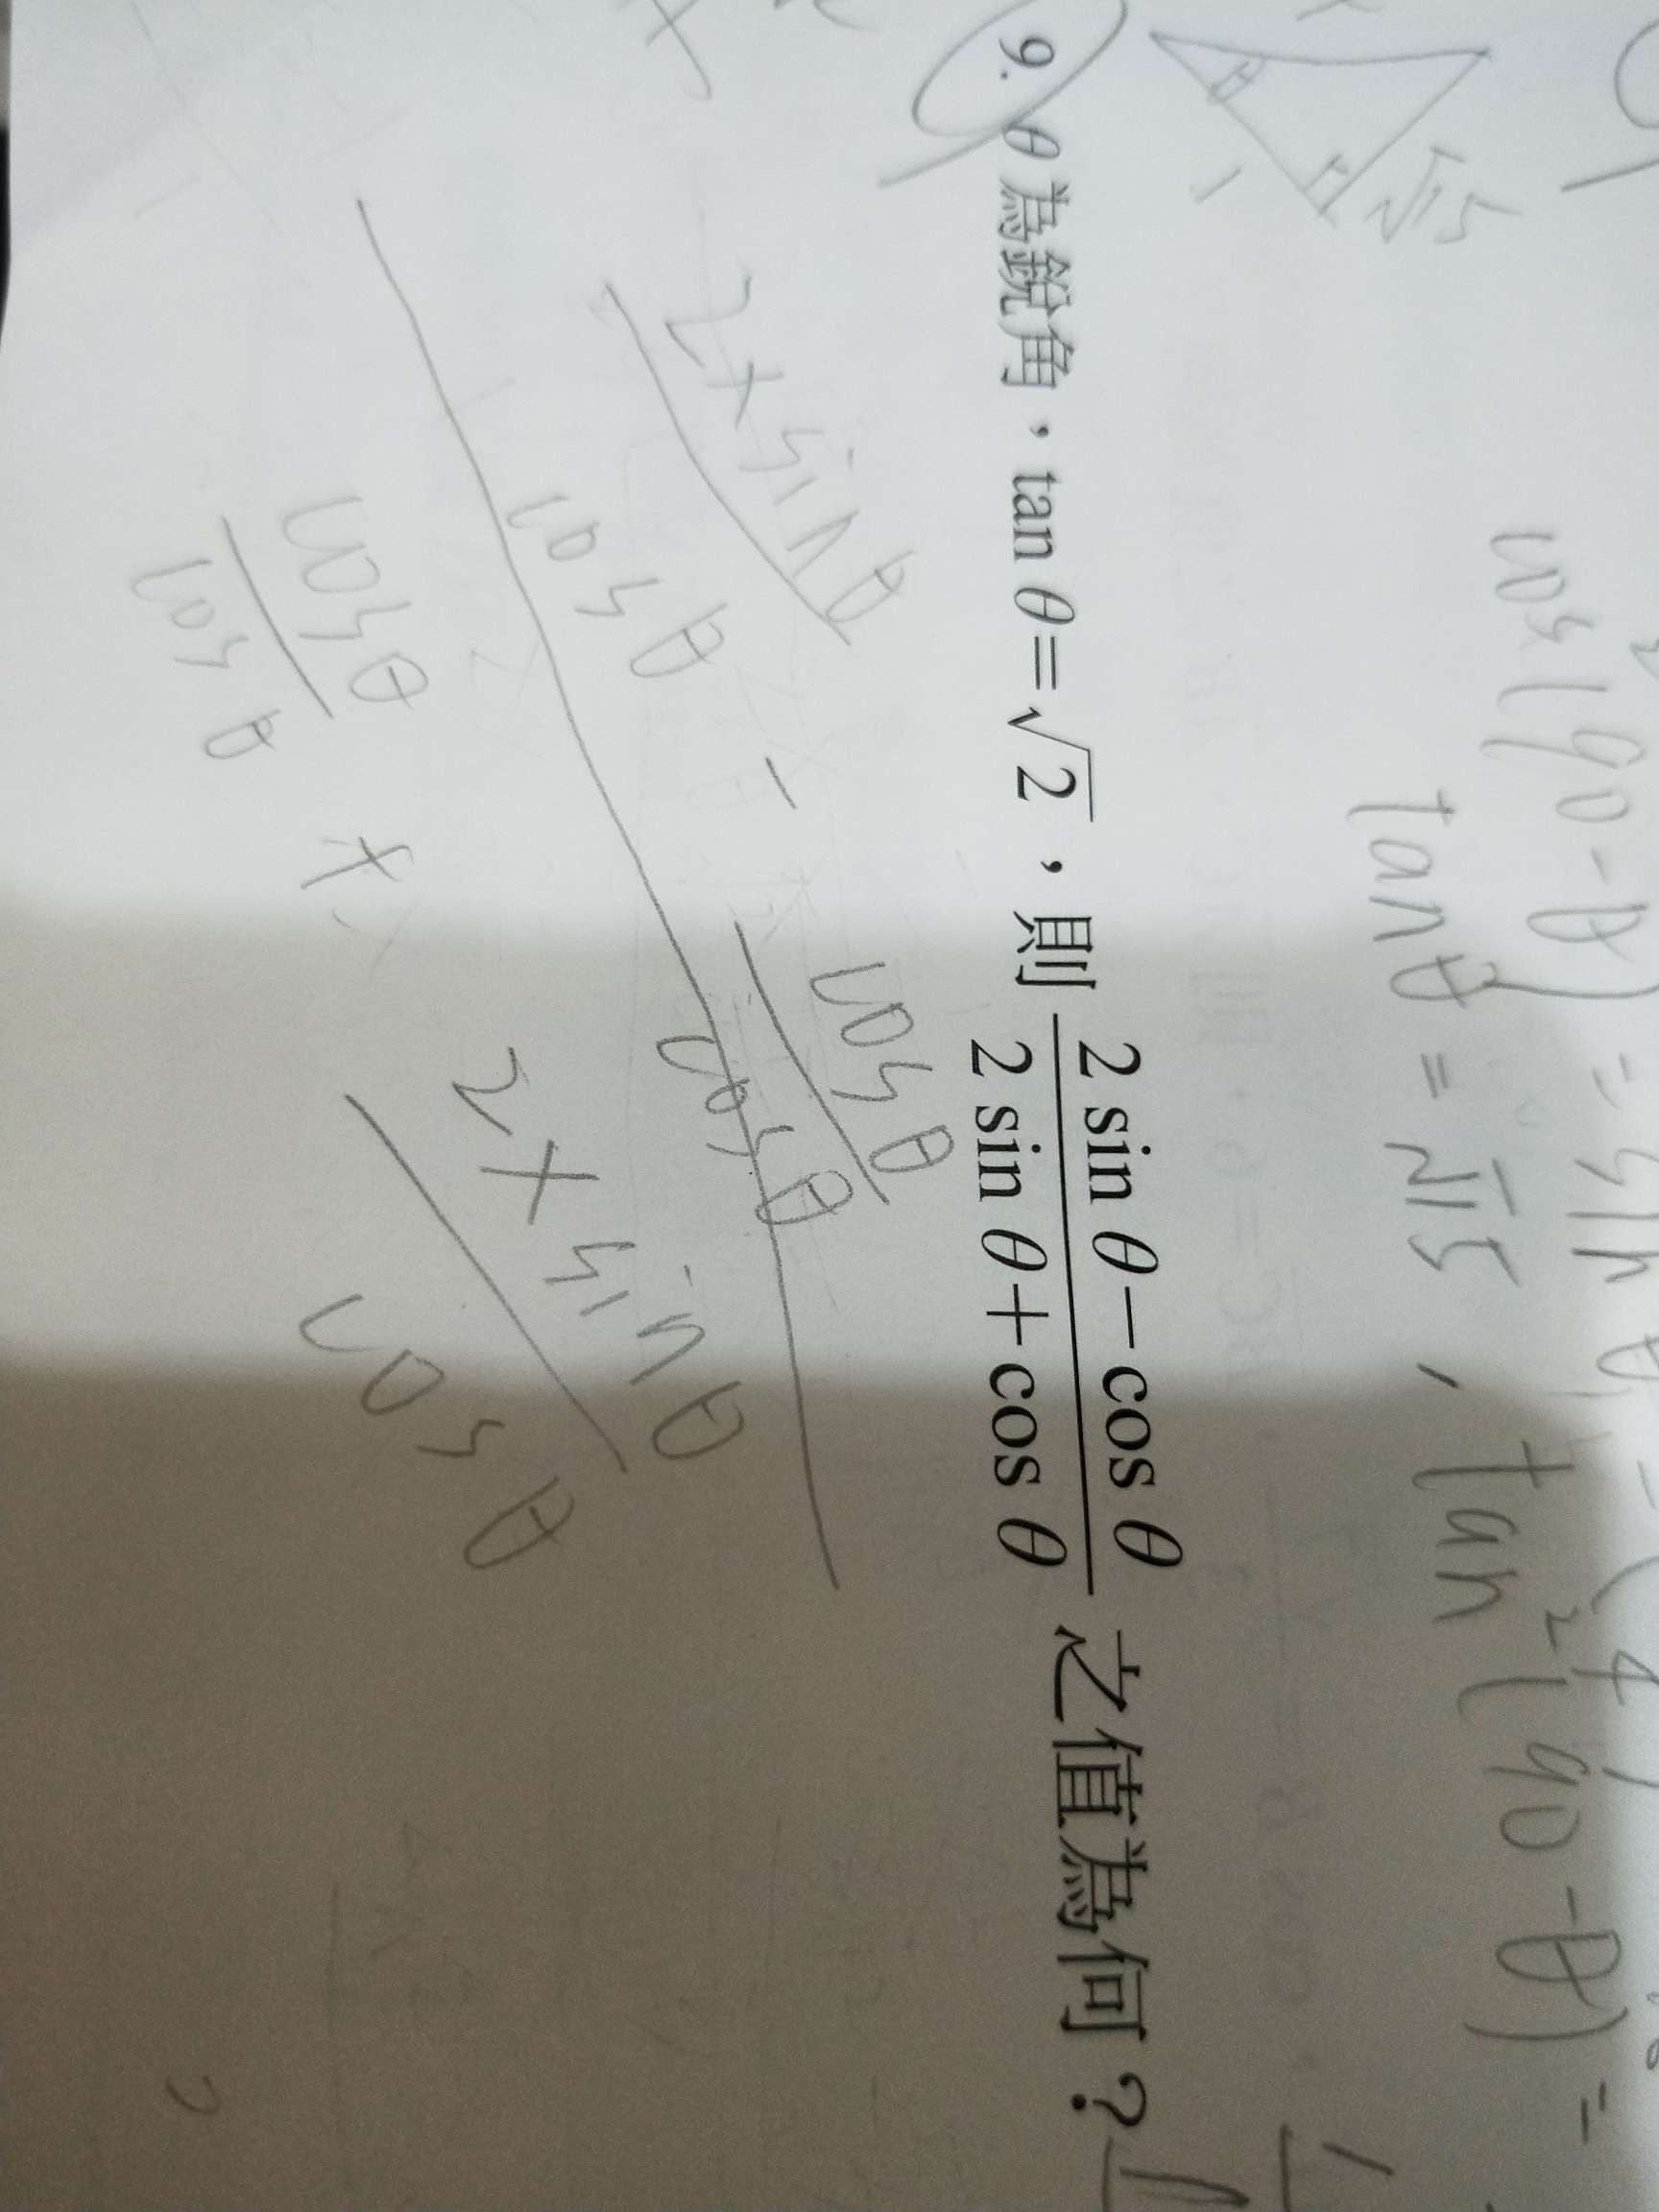 cos²(90-θ) = sin
tanθ = √15 , tan²(90-θ) =
θ
1
√15
9. θ 為銳角，tan θ=√2，則 2 sin θ−cos θ / 2 sin θ+cos θ 之值為何？
2×sinθ / cosθ - cosθ / cosθ
cosθ / cosθ + 2×sinθ / cosθ